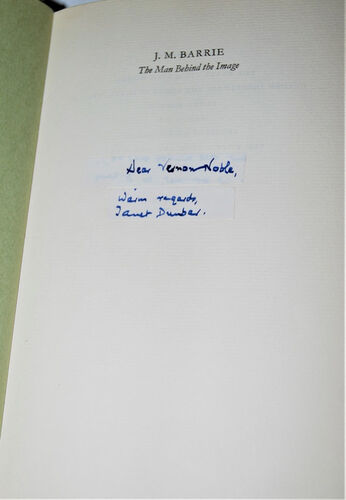 J. M. BARRIE
The Man Behind the Image
Dear Vernon Noble,
Warm regards,
Janet Dunbar.